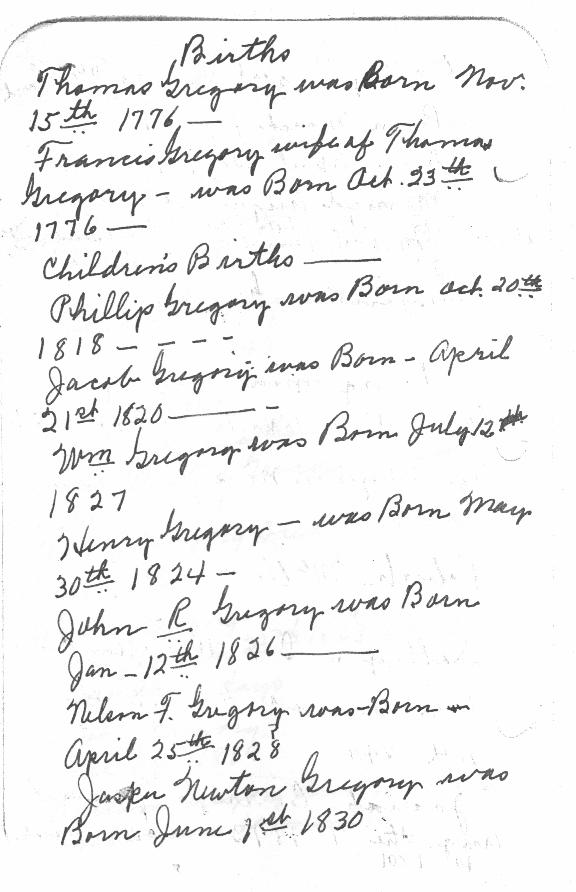 Births
Thomas Gregory was Born Nov.
15th 1776 —
Francis Gregory wife of Thomas
Gregory – was Born Oct. 23th
1776 —
Children's Births ——
Phillip Gregory was Born Oct. 20th
1818 – – – –
Jacob Gregory was Born – April
21st 1820 —— –
Wm Gregory was Born July 12th
1827
Henry Gregory – was Born May
30th 1824 –
John R Gregory was Born
Jan – 12th 1826 ——
Nelson F. Gregory was – Born –
April 25th 1828
Jasper Newton Gregory was
Born June 1st 1830